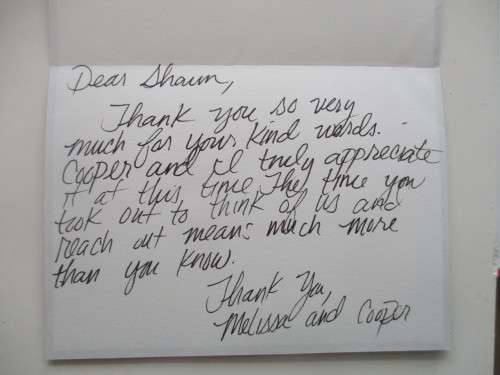 Dear Shaun,
Thank you so very
much for your kind words.
Cooper and I truly appreciate
it at this time. The time you
took out to think of us and
reach out means much more
than you know.
Thank You,
Melissa and Cooper